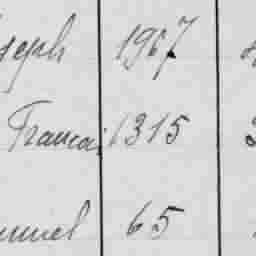 seph 1967
Francai 1315
muel 65